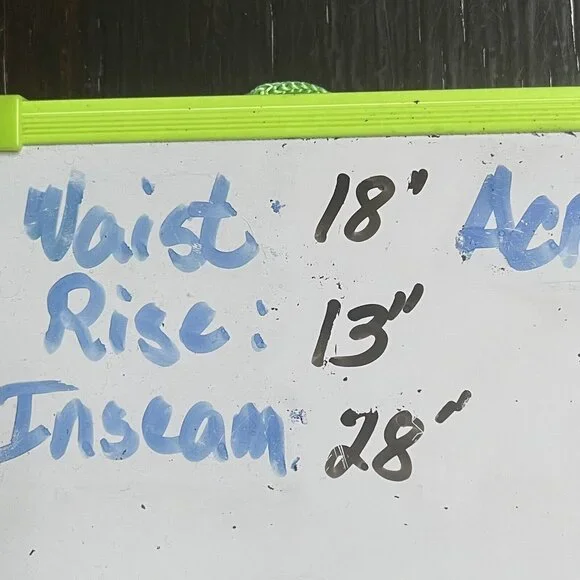 Waist: 18"
Rise: 13"
Inseam: 28"